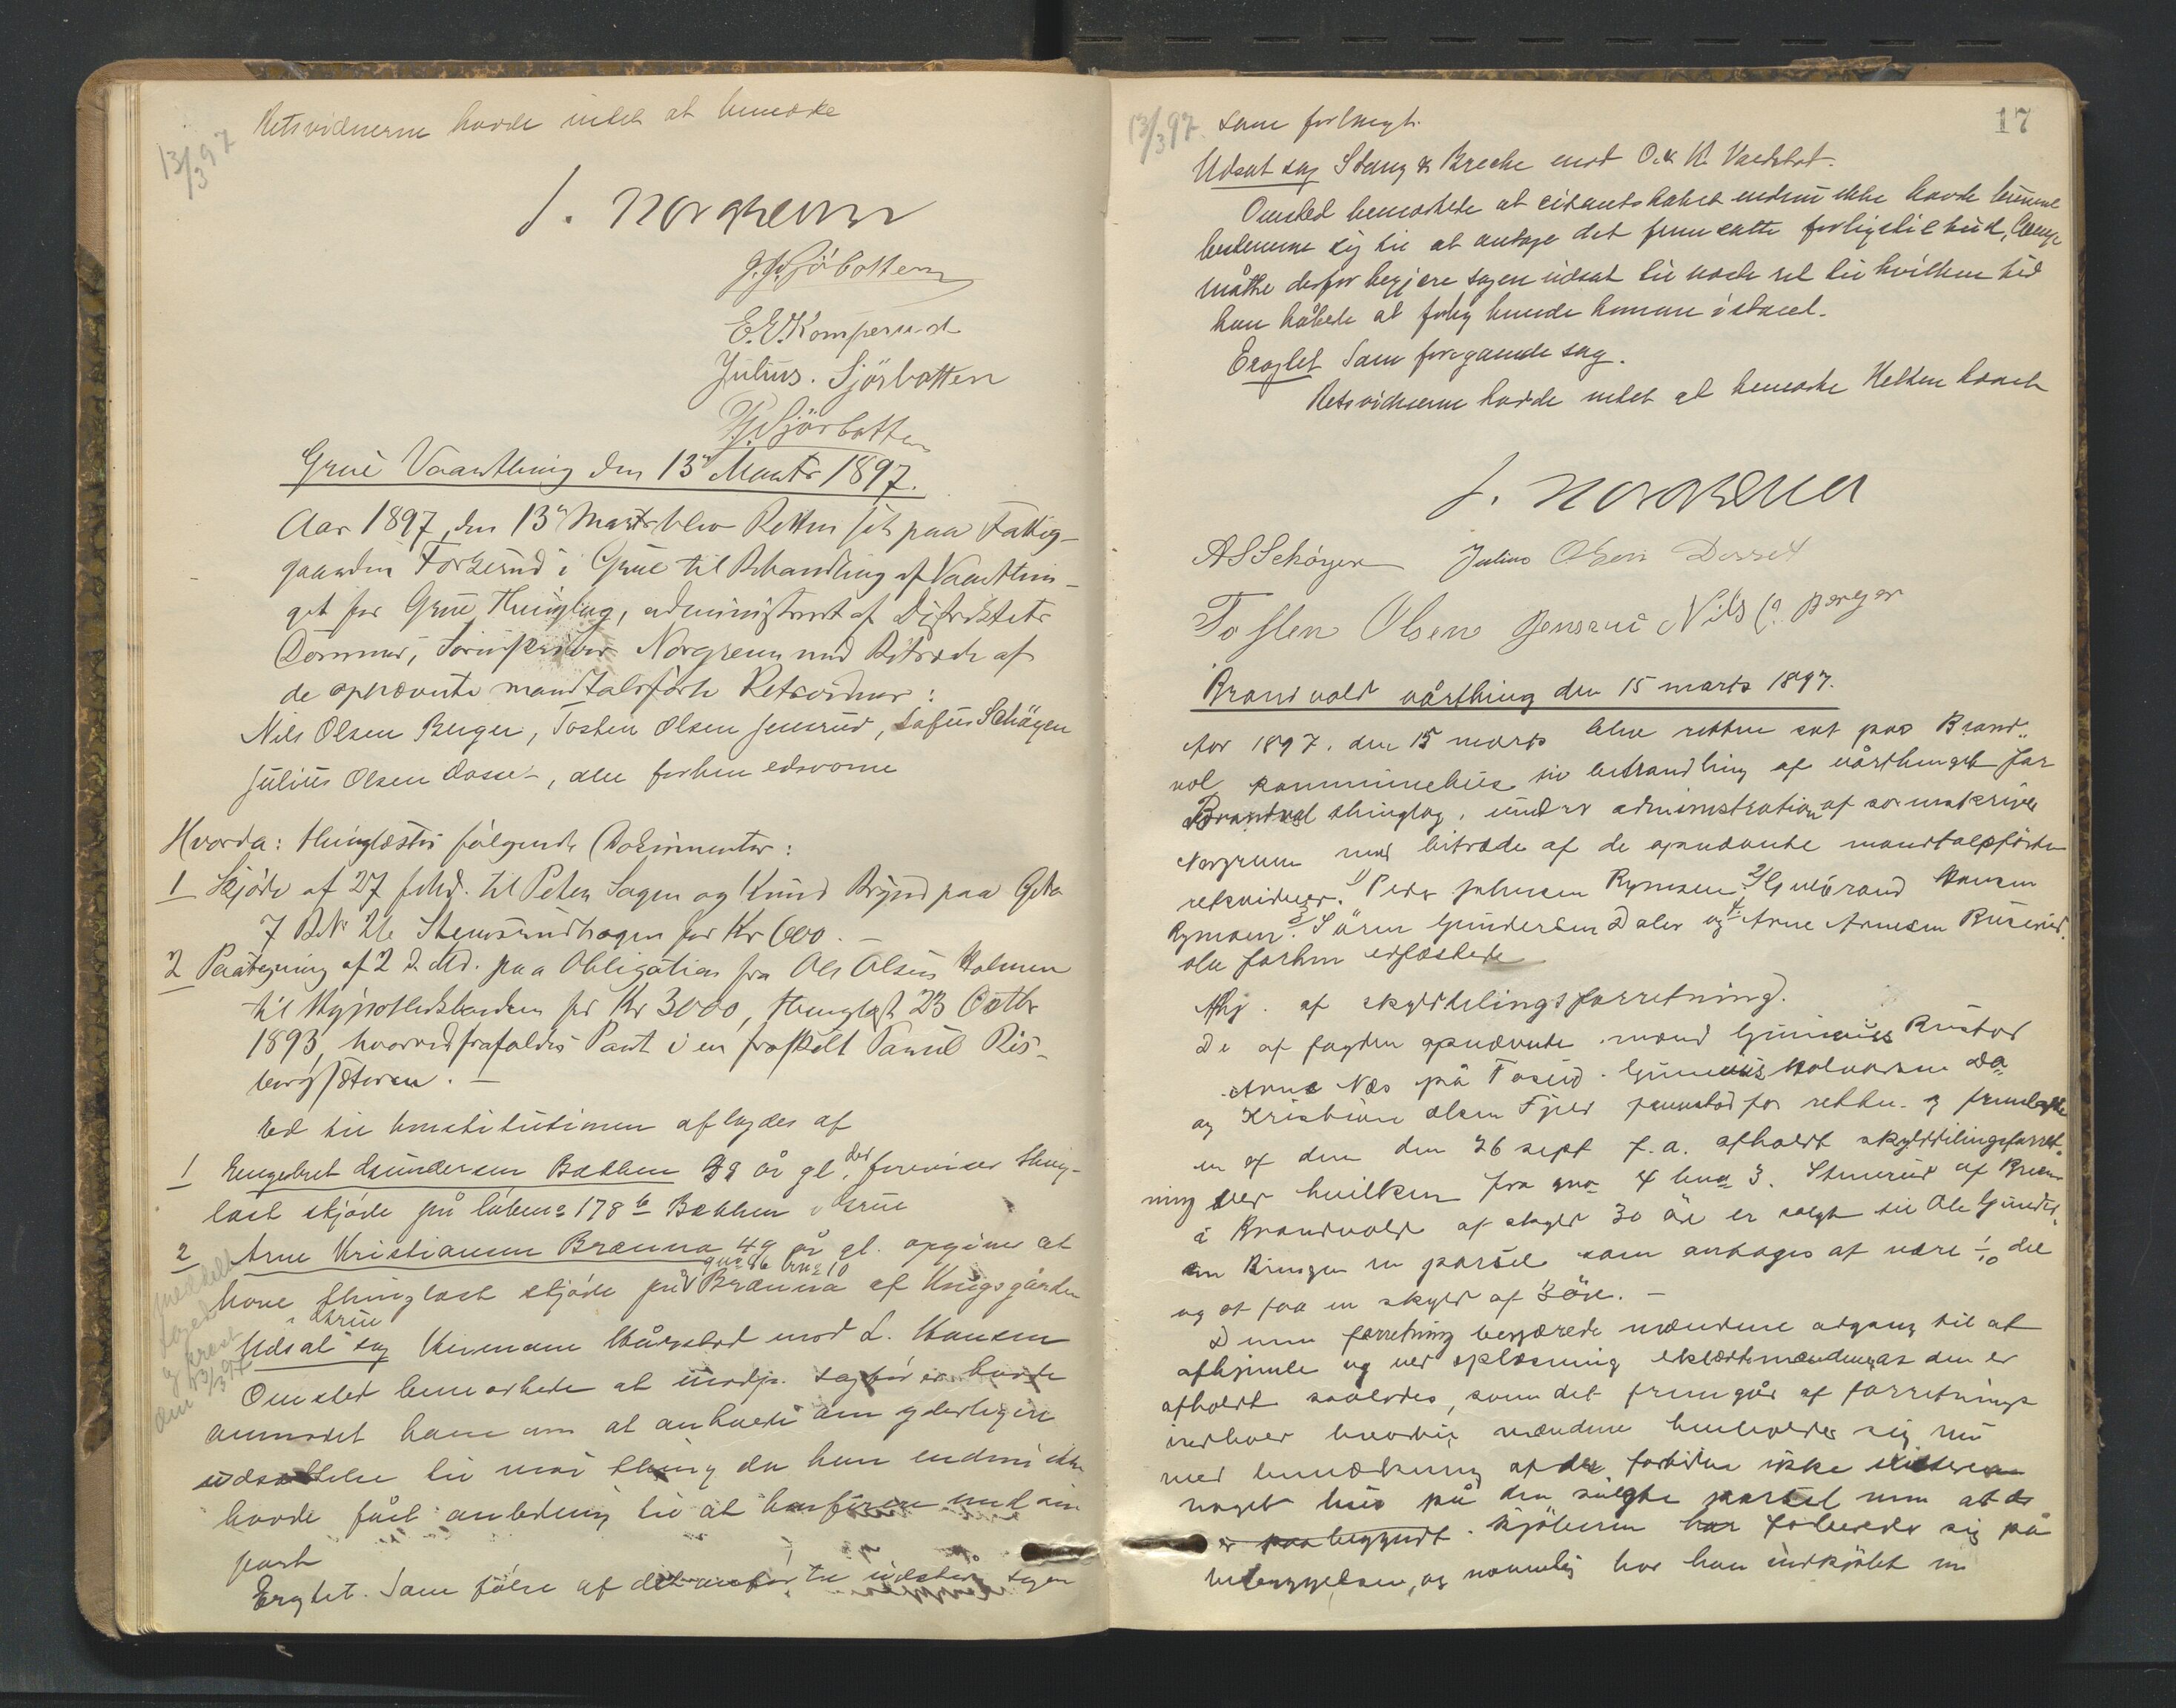 13/3 97
Retsvidnerne havde intet at bemærke
J. Norgrenn
E. E. Komperud
Julius. Sjörbotten
Grue Vaarthing den 13de Marts 1897.
Aar 1897, den 13de Marts blev Retten sat paa Fattig-
gaarden Torkerud i Grue til Behandling af Vaarthin-
get for Grue Thinglag, administreret af Distriktets
Dommer, Sorenskriver Norgrenn med Bitræde af
de opnævnte mandtalsførte Retsvidner:
Nils Olsen Berger, Tosten Olsen Jensrud, Schøyen
Julius Olsen Dosse, alle forhen edsvorne
Hvorda: thinglæstes følgende Dokumenter:
1 Skjøde af 27 febr. til Peter Sagen og Knud Brynd paa GNo
7 BNo 26 for Kr 600.
2 Paategning af 2 d. Md. paa Obligation fra Ole Olsen Holmen
til Hypothekbanken for Kr 3000, thinglæst 23 Octbr
1893, hvorved frafaldes Pant i en fraskilt Parcel Ris-
bergsæteren.
Ed til konstitutionen aflagdes af
1 Engebret Gundersen Bakken år gl. der foreviser thing-
læst skjøde på løbeno 178 b Bakken i Grue
2 Arne Kristiansen Brænna 49 år gl. opgiver at
gno 86 bno 10
have thinglæst skjøde på Brænna af Kongsgården
i Grue
Udsat sag Hermann Hårstad mod L. Hansen
Omsted bemærkede at modp. sagfører havde
anmodet ham om at anholde om yderligere
udsættelse til mai thing da han endnu ikke
havde fået anledning til at konferere med sin
part
Eragtet. Som følge af det anførte udstår sagen
meddelt
den 13/3 97
17
13/3 97
som forlangt.
Udsat sag Stang & Breche mod O. & K. Vardstat.
Omsted bemærkede at citantskabet endnu ikke havde kunnet
bestemme sig til at antage det fremsatte forligstilbud,
måtte derfor begjære sagen udsat til næste ret til hvilken tid
han håbede at forlig kunde komme istand.
Eragtet Som foregående sag.
Retsvidnerne havde intet at bemærke Retten hævet
J. Norgrenn
A S Schøyen Julius Olsen Dosset
Tosten Olsen Jensrud Nils O. Berger
Brandvold vårthing den 15 marts 1897.
Aar 1897. den 15 marts blev retten sat paa Brand-
vol kommunehus til behandling af vårthinget for
Brandvol thinglag, under administration af sorenskriver
Norgrenn med bitræde af de opnævnte mandtalsførte
retsvidner. 1) Peder Johnsen Rymoen 2) Gulbrand Hansen
Rymoen 3) Søren Gundersen Dalen og 4) Arne Arnesen Buserud.
alle forhen edfæstede
Afhj. af skylddelingsforretning.
De af fogden opnævnte mænd Gunerius Rustad
Arne Næs på Tosrud. Gunerius Halvorsen
og Kristian olsen Fjeld fremstod for retten og fremlagde
en af dem den 26 sept f.a. afholdt skylddelingsforret-
ning ved hvilken fra gno 4 bno 3. Stenerud af
i Brandvold af skyld 30 øre er solgt til Ole Gunder-
sen Ringen en parsel som antages at være 1/10 del
og at faa en skyld af 3 øre.
Denne forretning begjærede mændene adgang til at
afhjemle og ved oplæsning erklærte mændene, at den er
afholdt saaledes, som det fremgår af forretnings
indhold hvortil mændene henholder sig nu
med bemærkning at der fortiden ikke existerer
noget hus på den solgte parsel men at de
er paabegyndt. Kjøberen har forberedt sig på
bebyggelsen, og navnlig har han indkjøbt en